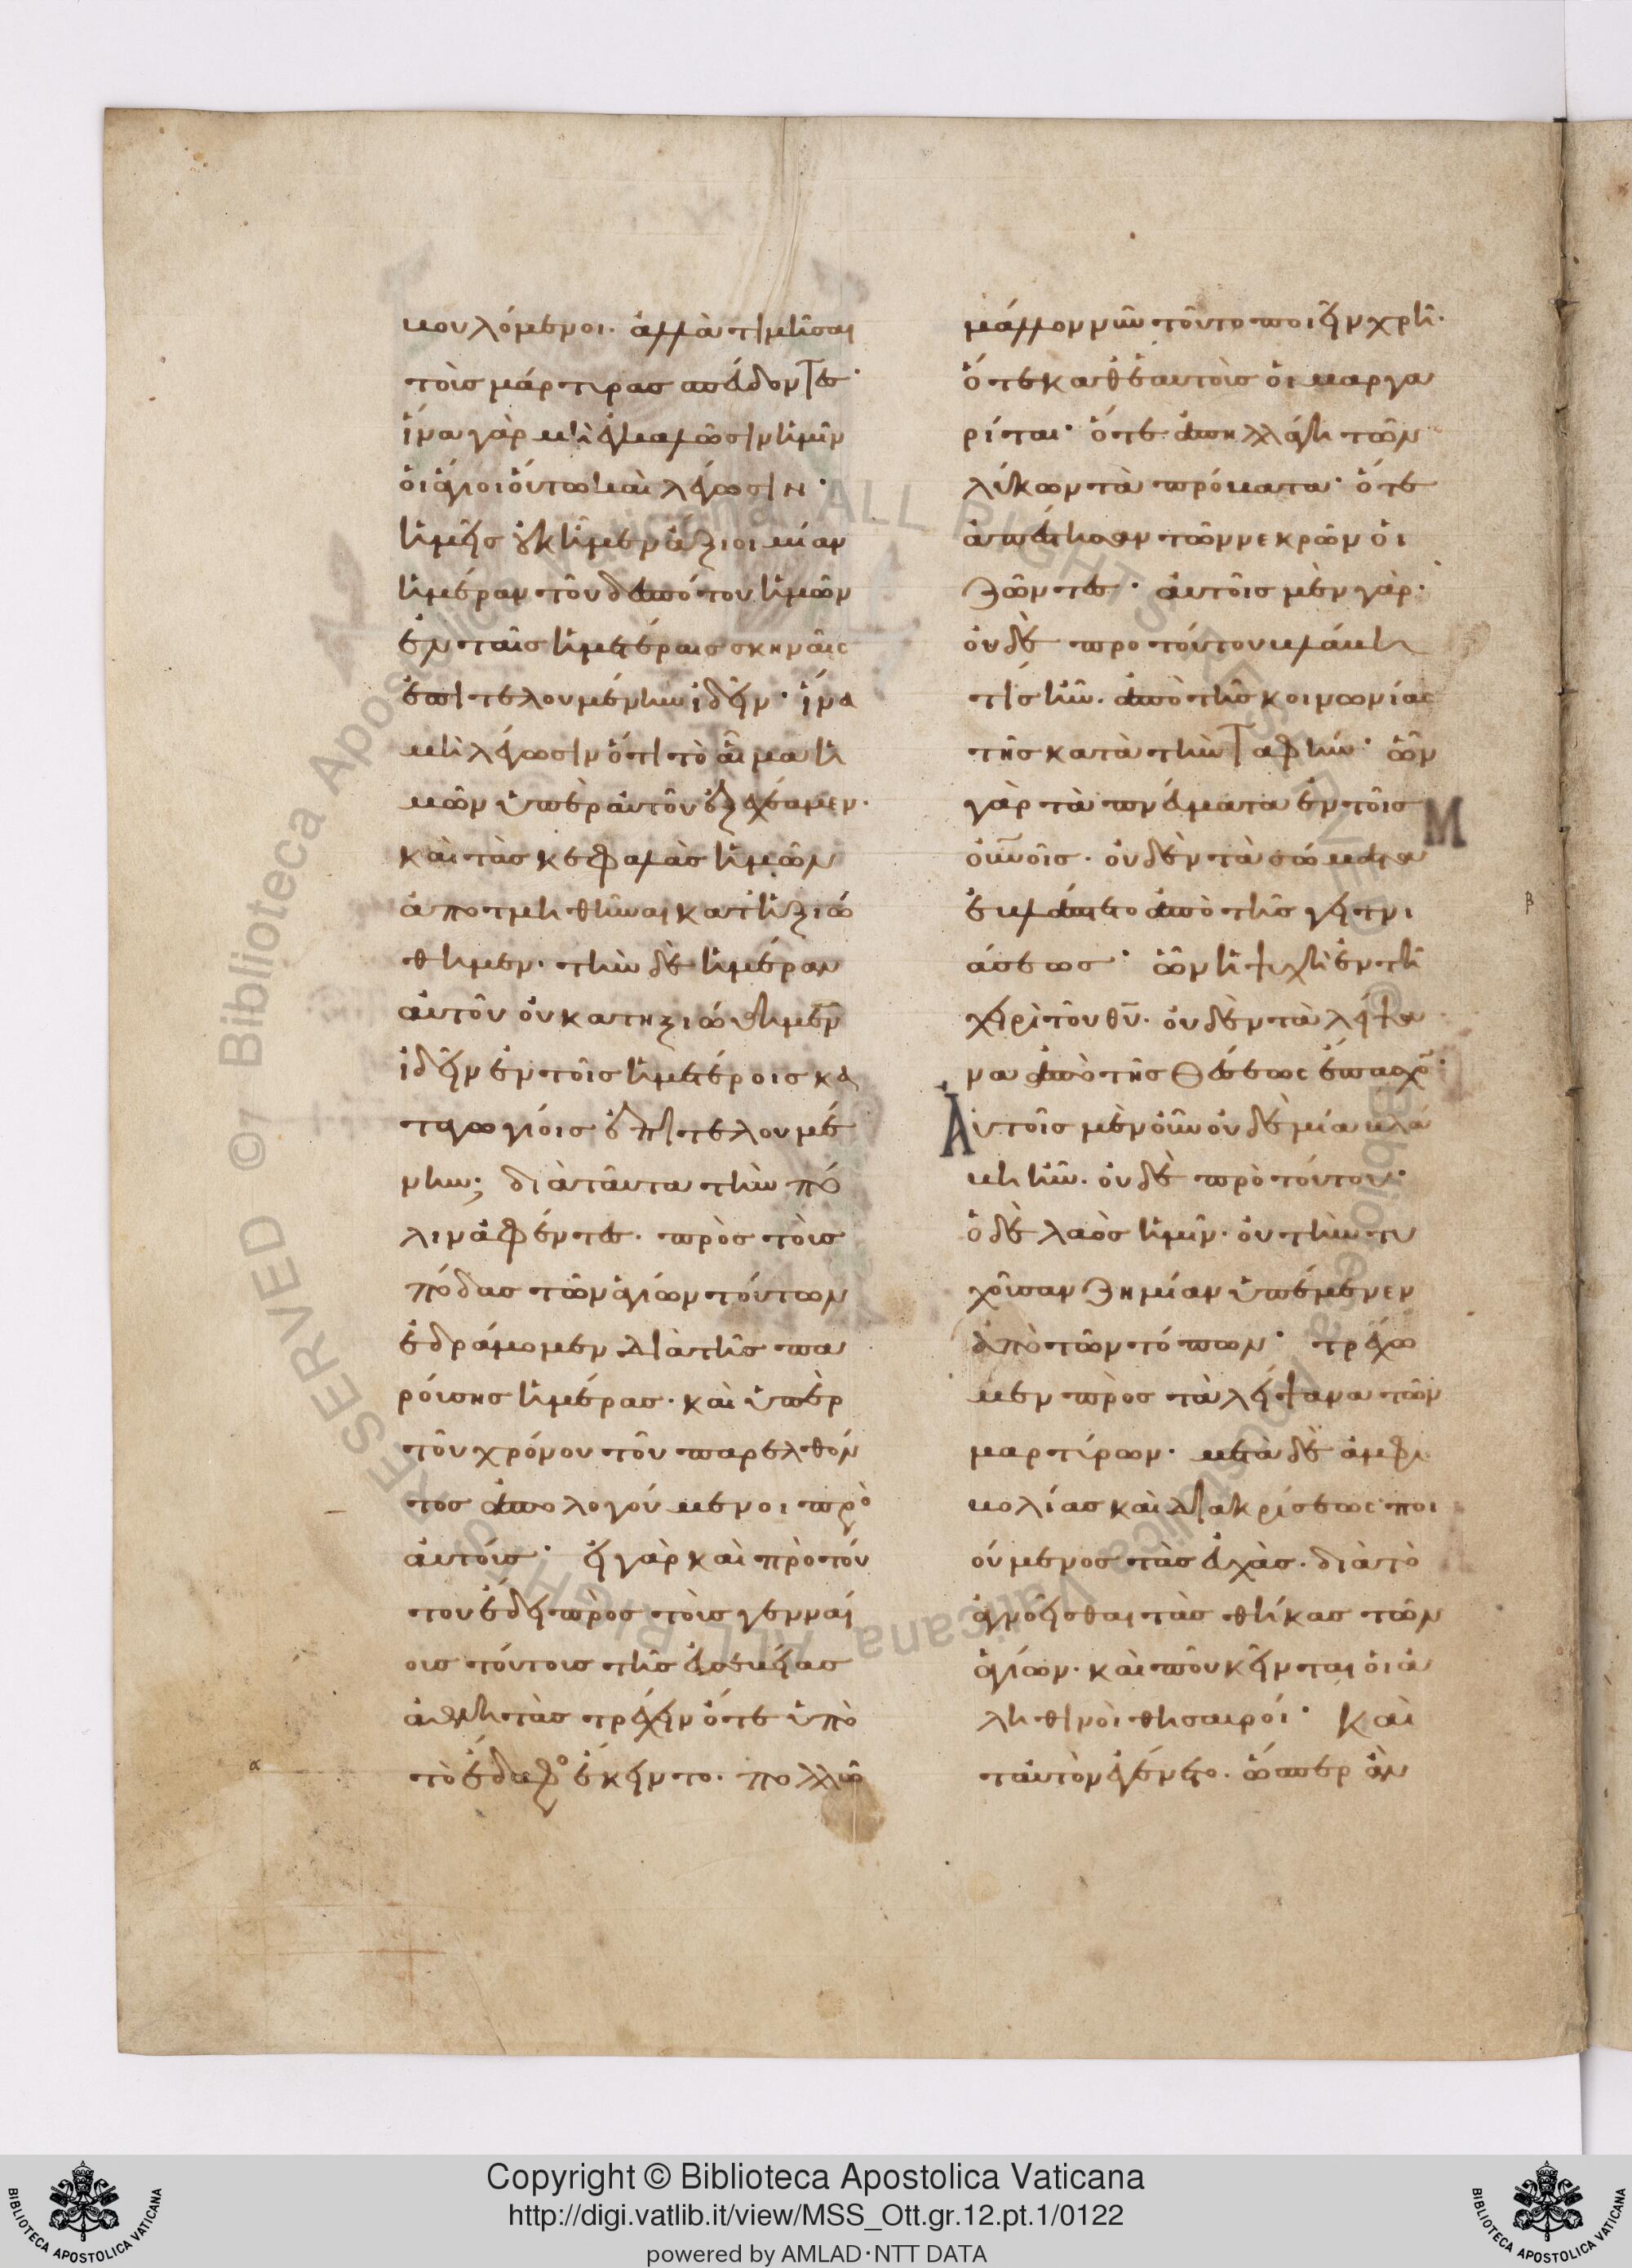 βουλόμενοι. ἀλλὰ τιμῆσαι
τοὶς μάρτυρας σπεύδοντες·
ἵνα γὰρ μὴ ἐγκαλῶσιν ἡμῖν
οἱ ἅγιοι οὕτω καὶ λέγωσιν·
ἡμεῖς οὐκ ἦμεν ἄξιοι μίαν
ἡμέραν τοῦ δεσπότου ἡμῶν
ἐν ταῖς ἡμετέραις σκηναῖς
ἐπιτελουμένην ἰδεῖν· ἵνα
μὴ λέγωσιν ὅτι τὸ αἷμα ἡ
μῶν ὑπὲρ αὐτοῦ ἐξεχέαμεν.
καὶ τὰς κεφαλὰς ἡμῶν
ἀποτμηθῆναι κατηξιώ
θημεν. τὴν δὲ ἡμέραν
αὐτοῦ οὐ κατηξιώθημεν
ἰδεῖν ἐν τοῖς ἡμετέροις κα
ταγωγίοις ἐπιτελουμέ
νην; διὰ ταῦτα τὴν πό
λιν ἀφέντες. πρὸς τοὶς
πόδας τῶν ἁγίων τούτων
ἐδράμομεν διὰ τῆς πα
ρούσης ἡμέρας. καὶ ὑπὲρ
τοῦ χρόνου τοῦ παρελθόν
τος ἀπολογούμενοι πρὸ
αὐτούς· εἰ γὰρ καὶ πρὸ τού
του ἔδει πρὸς τοὶς γενναί
οις τούτοις τῆς εὐσεβείας
ἀθλητὰς τρέχειν ὅτε ὑπὸ
τὸ ἔδαφος ἔκειντο. πολλῶ
μᾶλλον νῦν τοῦτο ποιεῖν χρὴ.
ὅτε καθ' ἑαυτοὶς οἱ μαργα
ρίται· ὅτε ἀπηλλάγη τῶν
λύκων τὰ πρόβατα· ὅτε
ἀπέστησαν τῶν νεκρῶν οἱ
ζῶντες· αὐτοῖς μὲν γὰρ·
οὐδὲ προ τούτου βλάβη
τίς ἦν. ἀπὸ τῆς κοινωνίας
τῆς κατὰ τὴν ταφήν· ὧν
γὰρ τὰ πνεύματα ἐν τοῖς
οὐνοῖς. οὐδὲν τὰ σώματα
ἐβλάπτετο ἀπὸ τῆς γειτνι
άσεως· ὧν ἡ ψυχὴ ἐν τῆ
χειρὶ τοῦ θυ. οὐδὲν τὰ λείψα
να ἀπὸ τῆς θέσεως ἔπασχον·
Αὐτοῖς μὲν οὖν οὐδὲ μία βλά
βη ἦν. οὐδὲ πρὸ τούτου·
ὁ δὲ λαὸς ἡμῖν. οὐ τὴν τυ
χοῦσαν ζημίαν ὑπέμενεν
ἀπὸ τῶν τόπων· τρέχω
μεν πρὸς τὰ λείψανα τῶν
μαρτύρων. μετὰ δὲ ἀμφι
βολίας καὶ διακρίσεως ποι
ούμενος τὰς εὐχὰς. διὰ τὸ
ἀγνοεῖσθαι τὰς θήκας τῶν
ἁγίων. καὶ ποῦ κεῖνται οἱ ἀ
ληθινοὶ θησαυροί· καὶ
ταὐτὸν ἐγένετο. ὥσπερ ἂν
Copyright © Biblioteca Apostolica Vaticana
http://digi.vatlib.it/view/MSS_Ott.gr.12.pt.1/0122
powered by AMLAD·NTT DATA
BIBLIOTECA APOSTOLICA VATICANA
BIBLIOTECA APOSTOLICA VATICANA